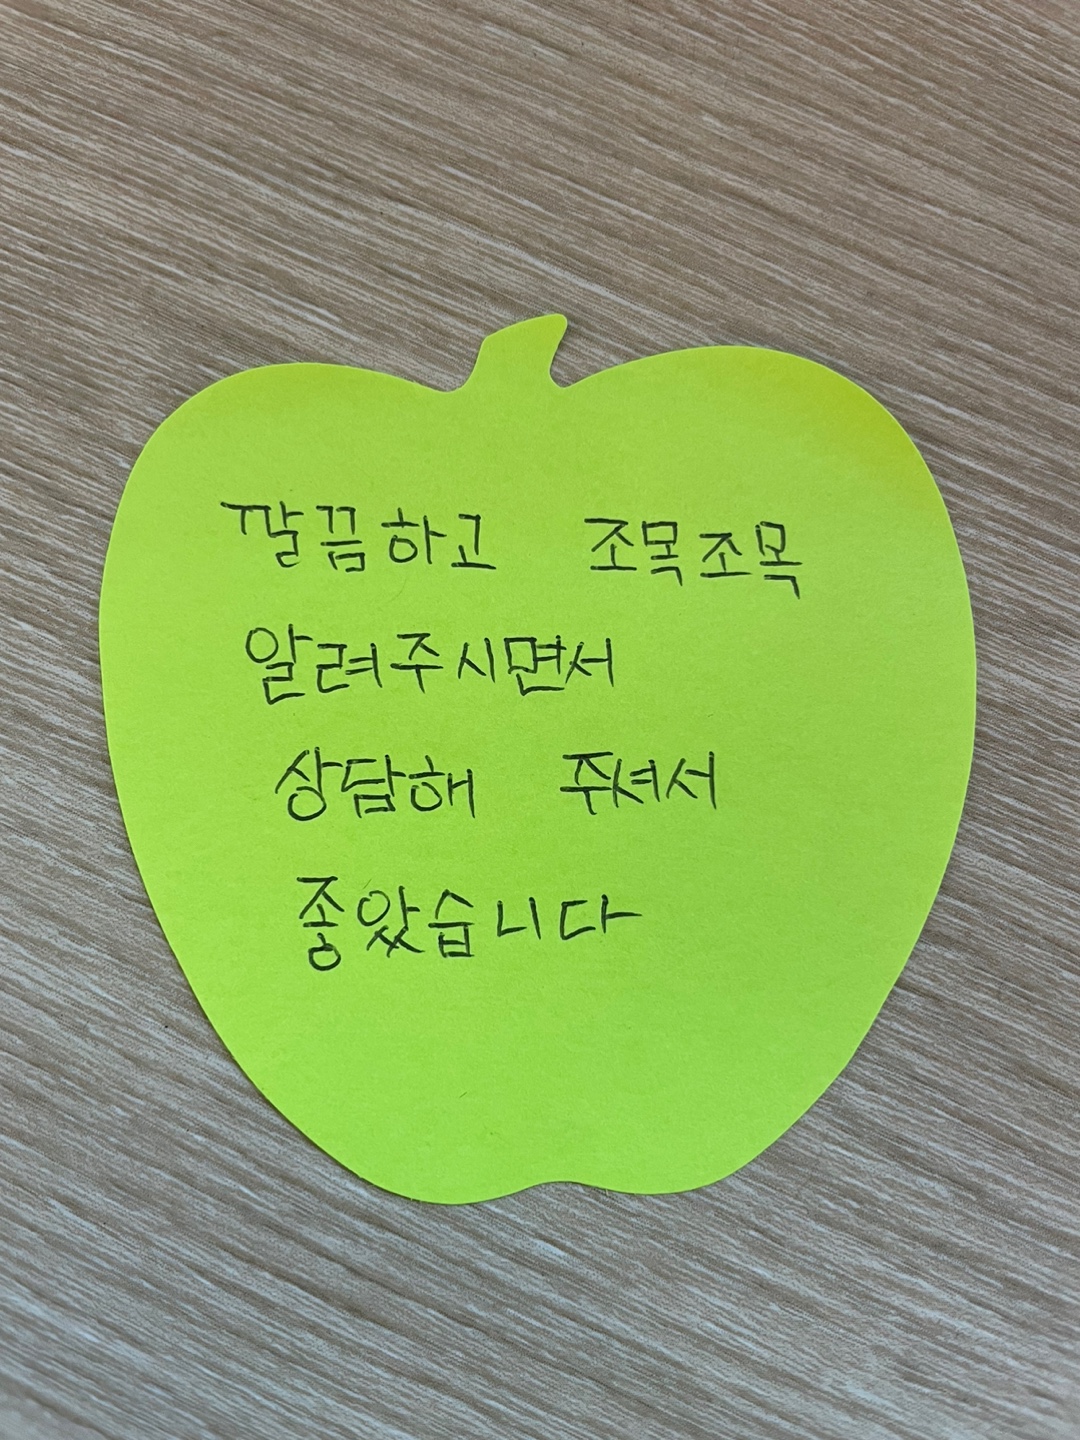 깔끔하고 조목조목
알려주시면서
상담해 주셔서
좋았습니다